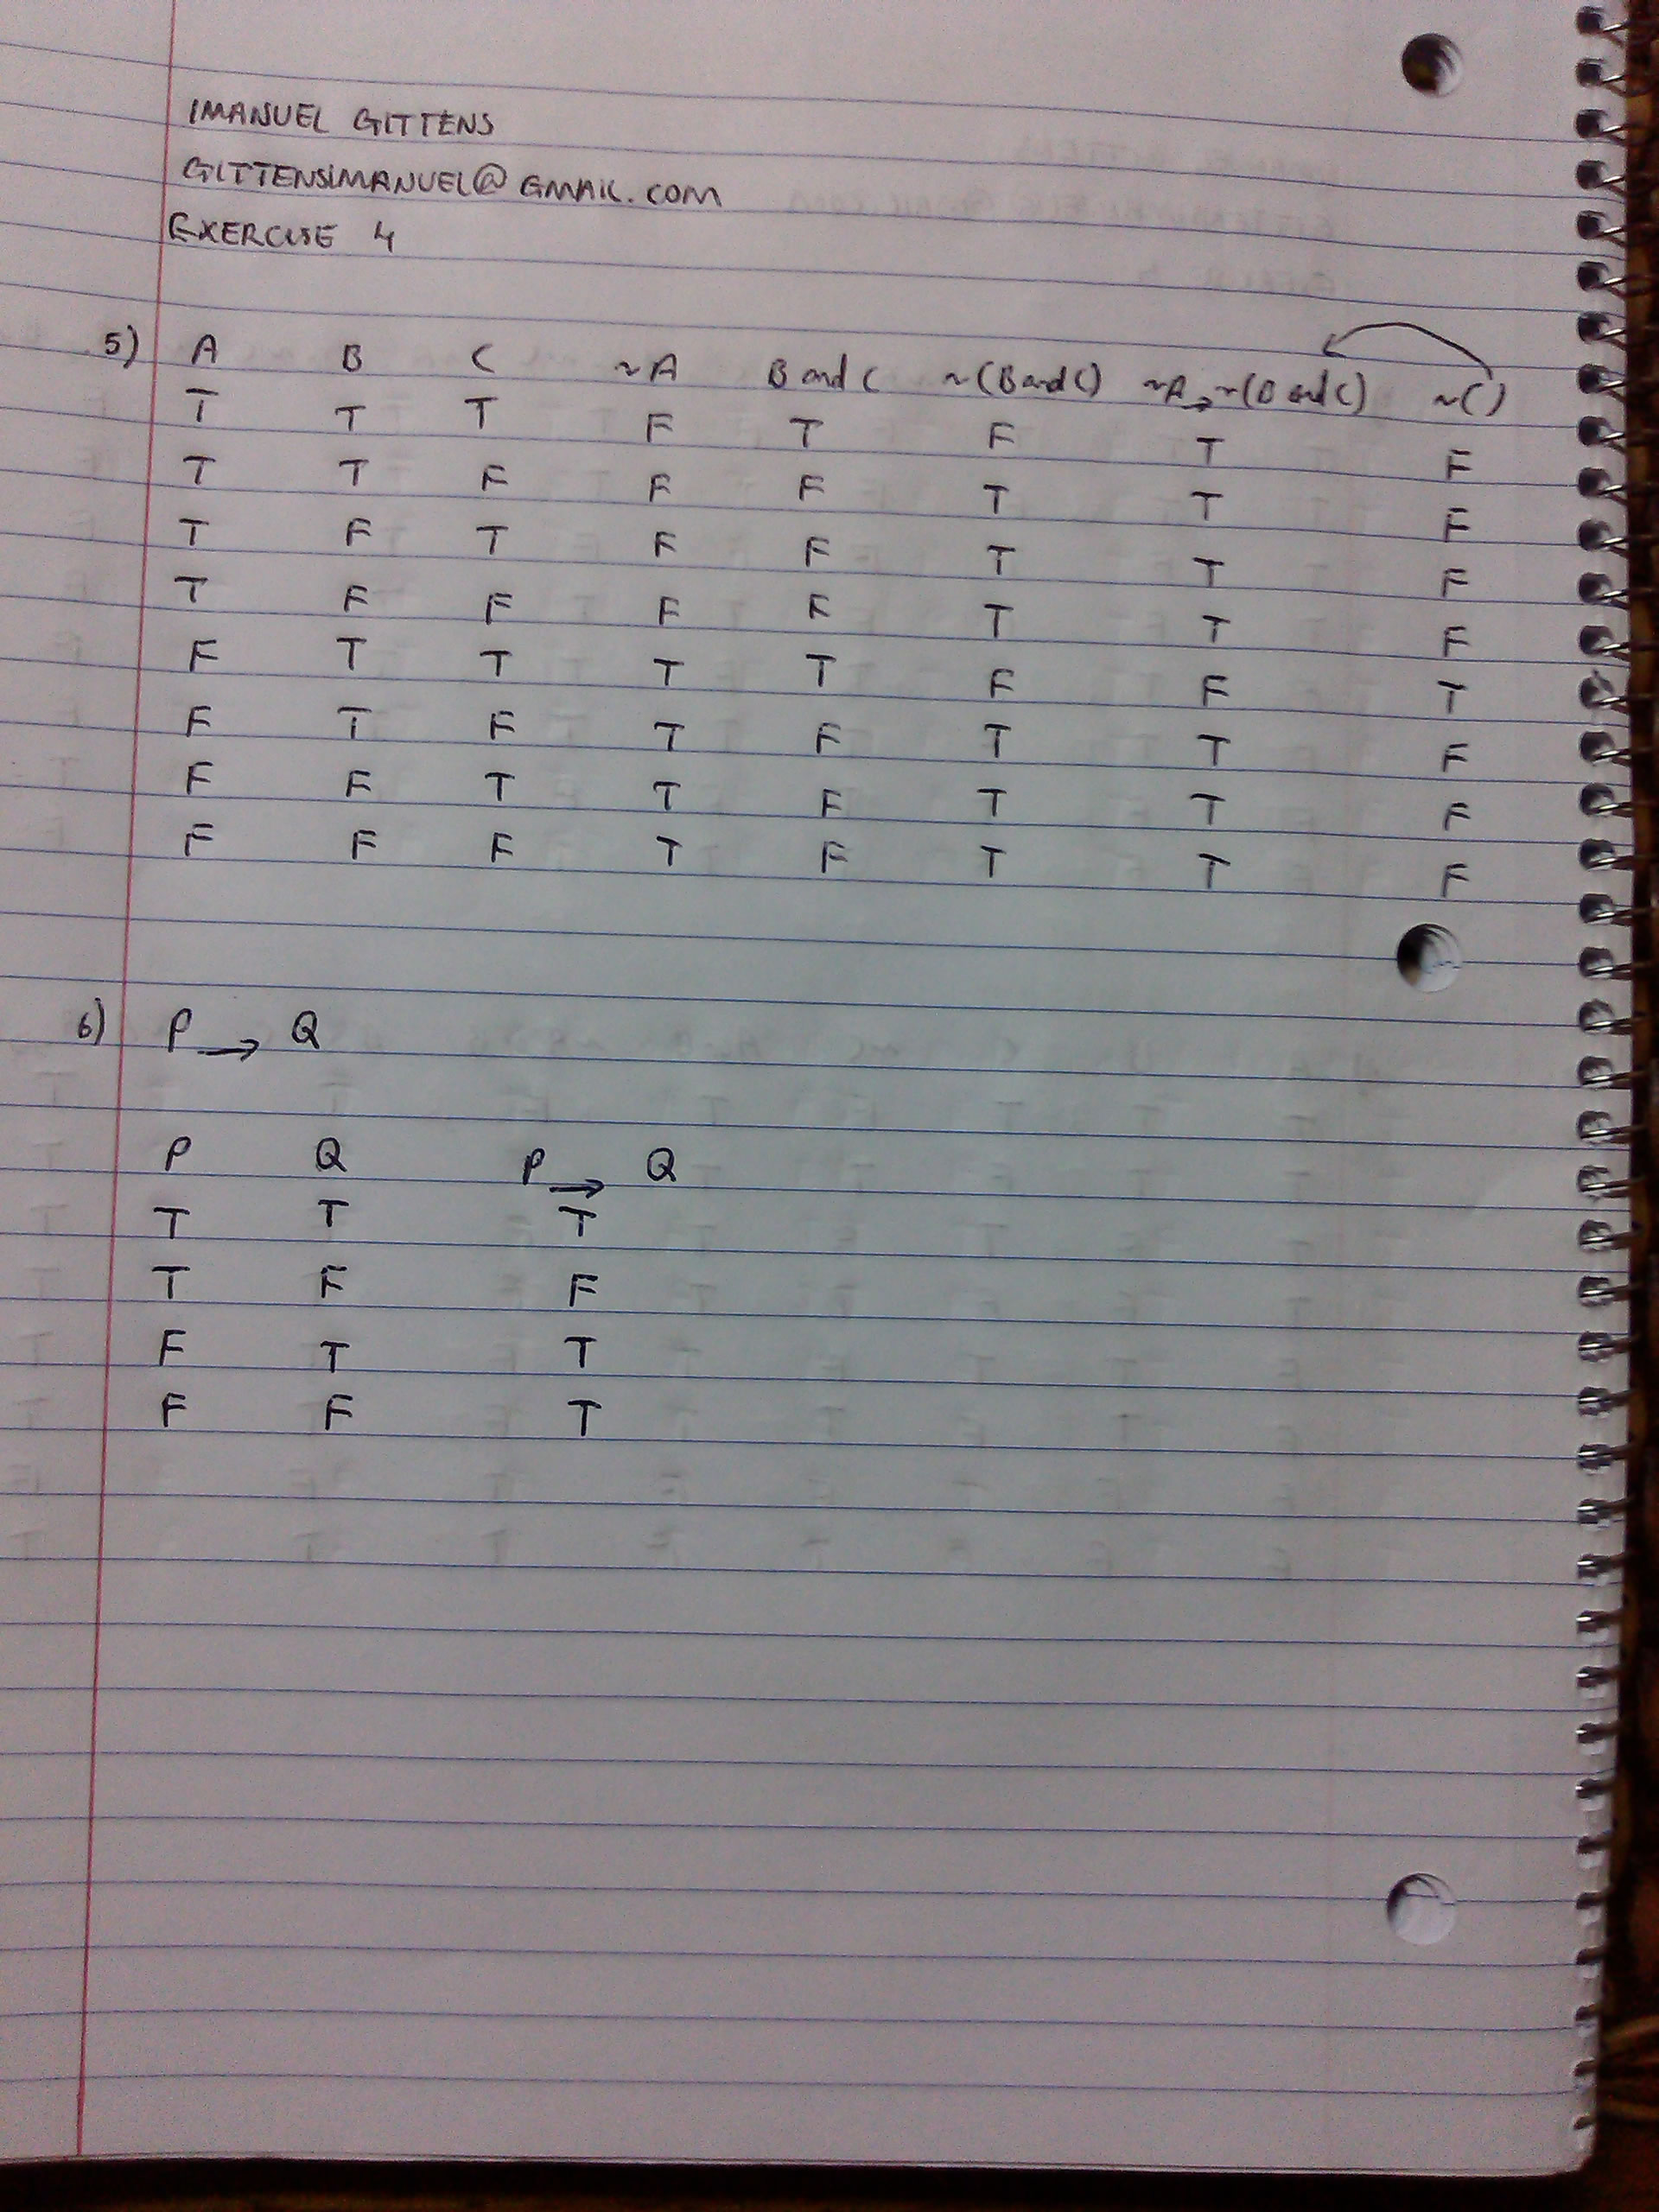 IMANUEL GITTENS
GITTENSIMANUEL@GMAIL.COM
EXERCISE 4
5) A B C ~A B and C ~(B and C) ~A → ~(B and C) ~( )
T T T F T F T F
T T F F F T T F
T F T F F T T F
T F F F F T T F
F T T T T F F T
F T F T F T T F
F F T T F T T F
F F F T F T T F
6) P → Q
P Q P → Q
T T T
T F F
F T T
F F T